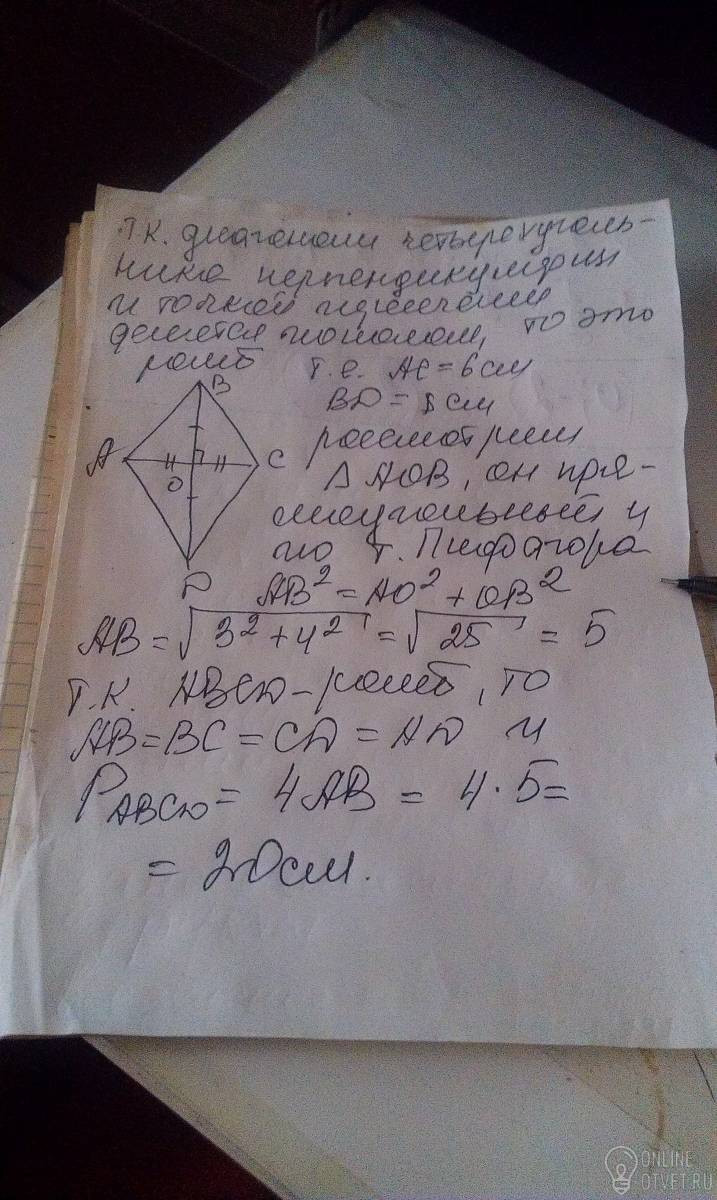 Т.к. диагонали четырехуголь-
ника перпендикулярны
и точкой пересечения
делятся пополам, то это
ромб т.е. AC = 6 см
BD = 8 см
B
A
C
O
D
рассмотрим
Δ AOB, он пря-
моугольный и
по т. Пифагора
AB² = AO² + OB²
AB = √3² + 4² = √25 = 5
т.к. ABCD - ромб, то
AB = BC = CD = AD и
P ABCD = 4AB = 4 · 5 =
= 20 см.
ONLINE
OTVET.RU